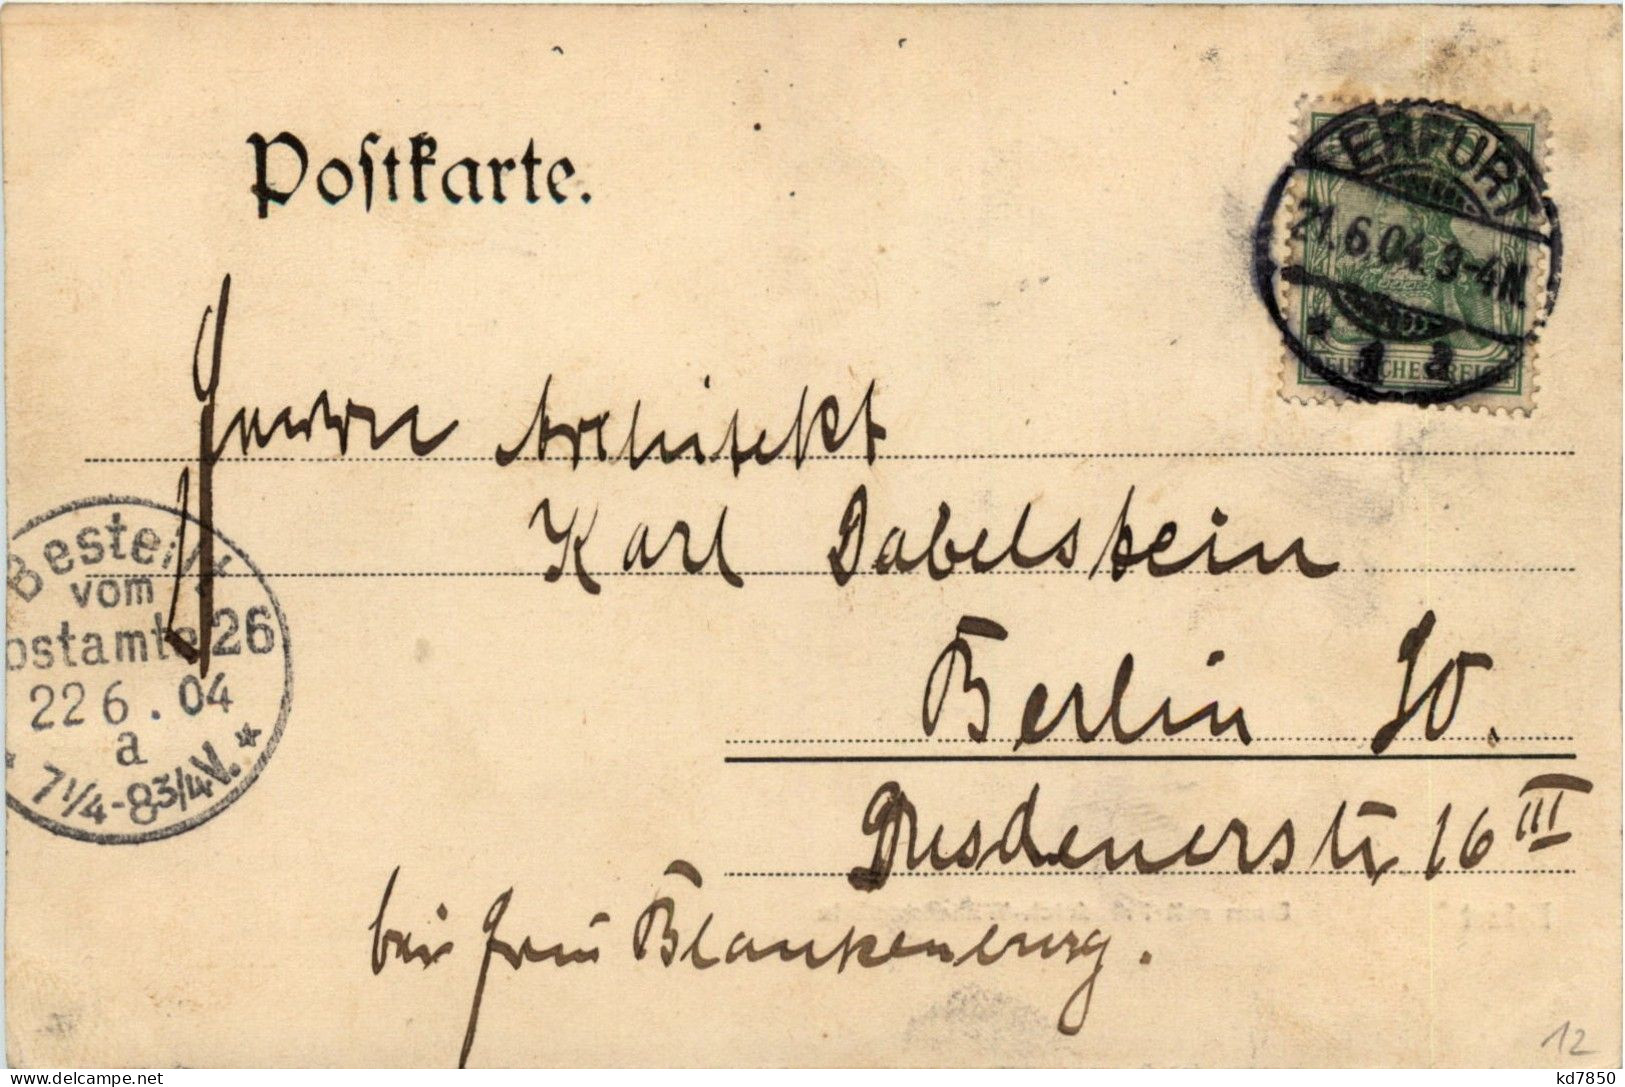 Postkarte.
ERFURT
21.6.04. 3-4N.
* 1 a
DEUTSCHES REICH
Herrn Architekt
Karl Dabelstein
Bestellt
vom
Postamte 26
22 6 . 04
a
* 7 1/4 - 8 3/4 V. *
Berlin SO.
Dresdenerstr 16 III
bei Frau Blankenburg.
12
kd7850